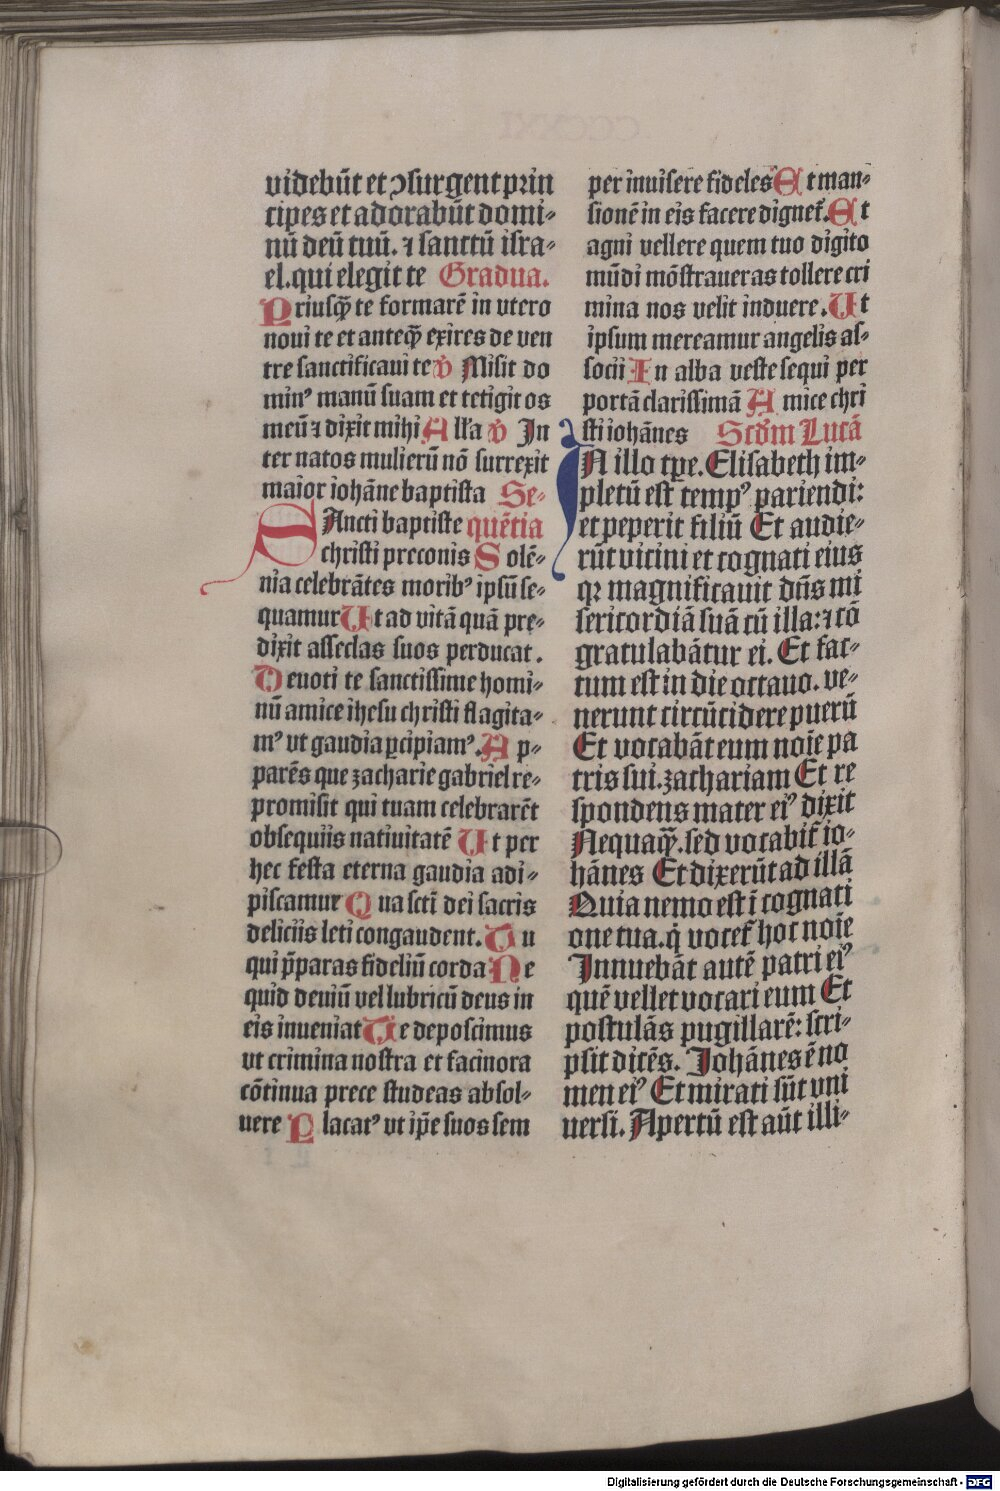 videbūt et ꝯsurgent prin
cipes et adorabūt domi⸗
nū deū tuū. ⁊ sanctū isra⸗
el. qui elegit te Gradua.
Priusq̄ te formarē in vtero
noui te et anteq̄ exires de ven
tre sanctificaui te ℣ Misit do
minꝰ manū suam et tetigit os
meū ⁊ dixit mihi Alla ℣ In
ter natos mulierū nō surrexit
maior iohāne baptista Se⸗
SAncti baptiste quētia
christi preconis Solē⸗
nia celebrātes moribꝰ ipsū se⸗
quamur Ut ad vitā quā pre⸗
dixit asseclas suos perducat.
Deuoti te sanctissime homi⸗
nū amice ihesu christi flagita⸗
mꝰ vt gaudia ꝑcipiamꝰ. Ap⸗
parēs que zacharie gabriel re⸗
promisit qui tuam celebrarēt
obsequiis natiuitatē Ut per
hec festa eterna gaudia adi⸗
piscamur Qua scti dei sacris
deliciis leti congaudent. Tu
qui p̄paras fideliū corda Ne
quid deuiū vel lubricū deus in
eis inueniat Te deposcimus
vt crimina nostra et facinora
cōtinua prece studeas absol⸗
uere Placatꝰ vt ip̄e suos sem
per inuisere fideles Et man⸗
sionē in eis facere dignet᷑. Et
agni vellere quem tuo digito
mūdi mōstraueras tollere cri
mina nos velit induere. Ut
ipsum mereamur angelis as⸗
socii In alba veste sequi per
portā clarissimā Amice chri
sti iohānes Scd̄m Lucā
IN illo tp̄e. Elisabeth im⸗
pletū est tempꝰ pariendi:
et peperit filiū Et audie⸗
rūt vicini et cognati eius
qꝛ magnificauit dn̄s mi
sericordiā suā cū illa: ⁊ cō
gratulabātur ei. Et fac⸗
tum est in die octauo. ve⸗
nerunt circūcidere puerū
Et vocabāt eum noīe pa
tris sui. zachariam Et re
spondens mater eiꝰ dixit
Nequaq̄. sed vocabit᷑ io⸗
hānes Et dixerūt ad illā
Quia nemo est ī cognati
one tua. q̇ vocet᷑ hoc noīe
Innuebāt autē patri eiꝰ
quē vellet vocari eum Et
postulās pugillarē: scri⸗
psit dicēs. Johānes ē no
men eiꝰ Et mirati sūt vni
uersi. Apertū est aūt illi⸗
Digitalisierung gefördert durch die Deutsche Forschungsgemeinschaft - DFG